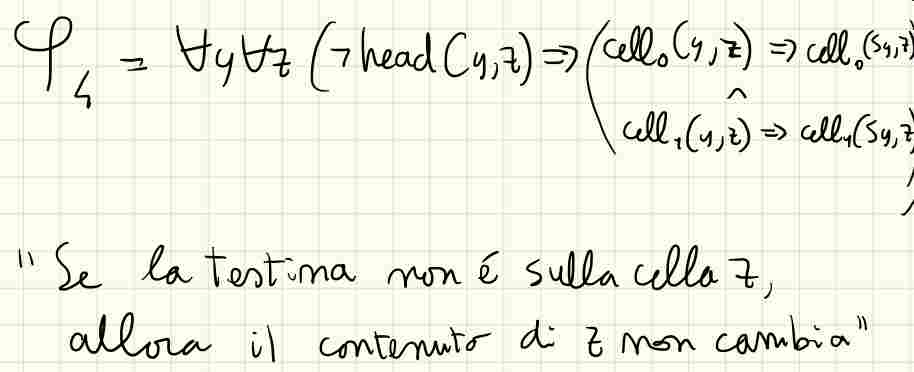 φ₄ = ∀y∀z (¬head(y,z) ⇒ (cell₀(y,z) ⇒ cell₀(sy,z)
∧
cell₁(y,z) ⇒ cell₁(sy,z
"Se la testina non é sulla cella z,
allora il contenuto di z non cambia"